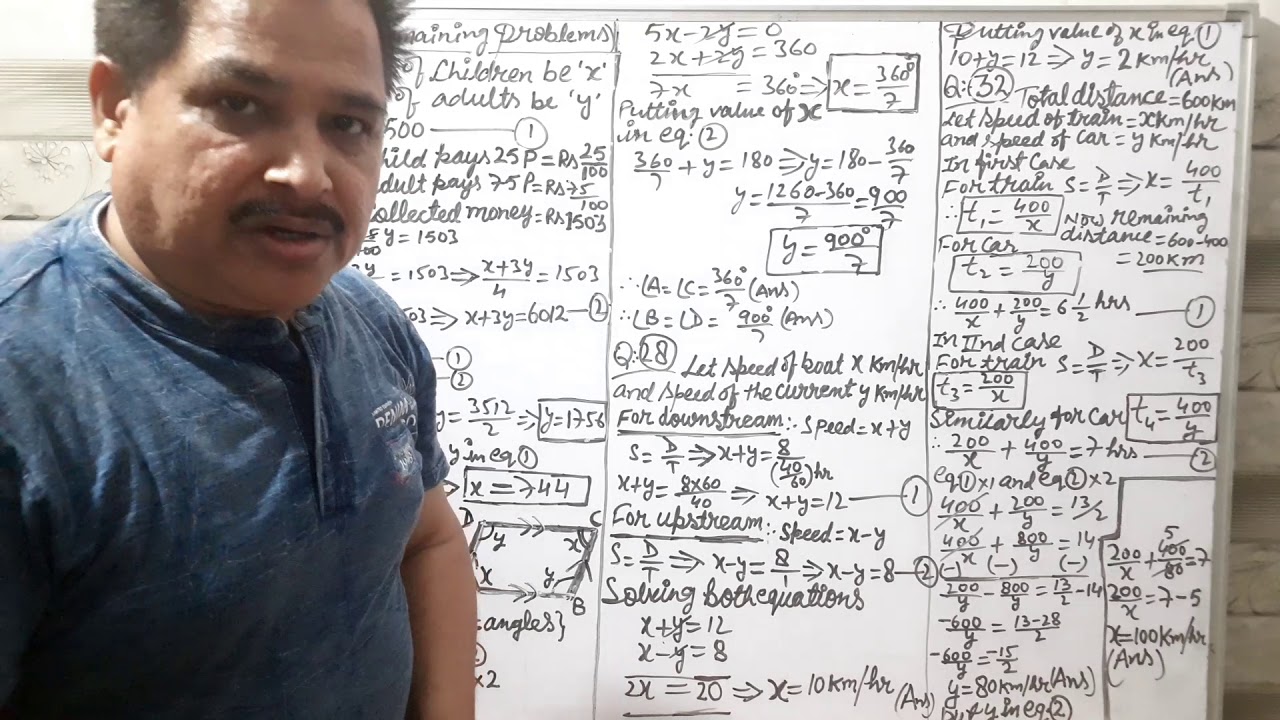 maining Problems
of Children be 'x'
of adults be 'y'
500 —— ①
hild pays 25 P = Rs 25/100
dult pays 75 P = Rs 75/100
ollected money = Rs 1503
y = 1503
= 1503 ⇒ x+3y/4 = 1503
⇒ x+3y = 6012 — ②
①
②
y = 3512/2 ⇒ y = 1756
y in eq ①
x = 744
D C
y x
x y
B
angles}
×2
5x - 2y = 0
2x + 2y = 360
7x = 360° ⇒ x = 360°/7
Putting value of x
in eq: ②
360/7 + y = 180 ⇒ y = 180 - 360/7
y = 1260-360/7 = 900/7
y = 900°/7
∴ ∠A = ∠C = 360°/7 (Ans)
∴ ∠B = ∠D = 900°/7 (Ans)
Q:28 Let speed of boat x Km/hr
and speed of the current y Km/hr
For downstream ∴ Speed = x+y
S = D/T ⇒ x+y = 8/(40/60) hr
x+y = 8×60/40 ⇒ x+y = 12 —— ①
For upstream ∴ Speed = x-y
S = D/T ⇒ x-y = 8/1 ⇒ x-y = 8 — ②
Solving both equations
x+y = 12
x-y = 8
2x = 20 ⇒ x = 10 Km/hr (Ans)
Putting value of x in eq ①
10+y = 12 ⇒ y = 2 Km/hr (Ans)
Q:32 Total distance = 600 Km
Let speed of train = x Km/hr
and speed of car = y Km/hr
In first Case
For train S = D/T ⇒ x = 400/t₁
∴ t₁ = 400/x Now remaining
distance = 600-400
= 200 Km
For Car
t₂ = 200/y
∴ 400/x + 200/y = 6 1/2 hrs —— ①
In IInd case
For train S = D/T ⇒ x = 200/t₃
t₃ = 200/x
Similarly for car t₄ = 400/y
∴ 200/x + 400/y = 7 hrs —— ②
eq ① ×1 and eq ② ×2
400/x + 200/y = 13/2
400/x + 800/y = 14
(-) (-) (-)
200/y - 800/y = 13/2 - 14
-600/y = 13-28/2
-600/y = -15/2
y = 80 Km/hr (Ans)
put y in eq: ②
5
200/x + 400/80 = 7
200/x = 7-5
x = 100 Km/hr
(Ans)